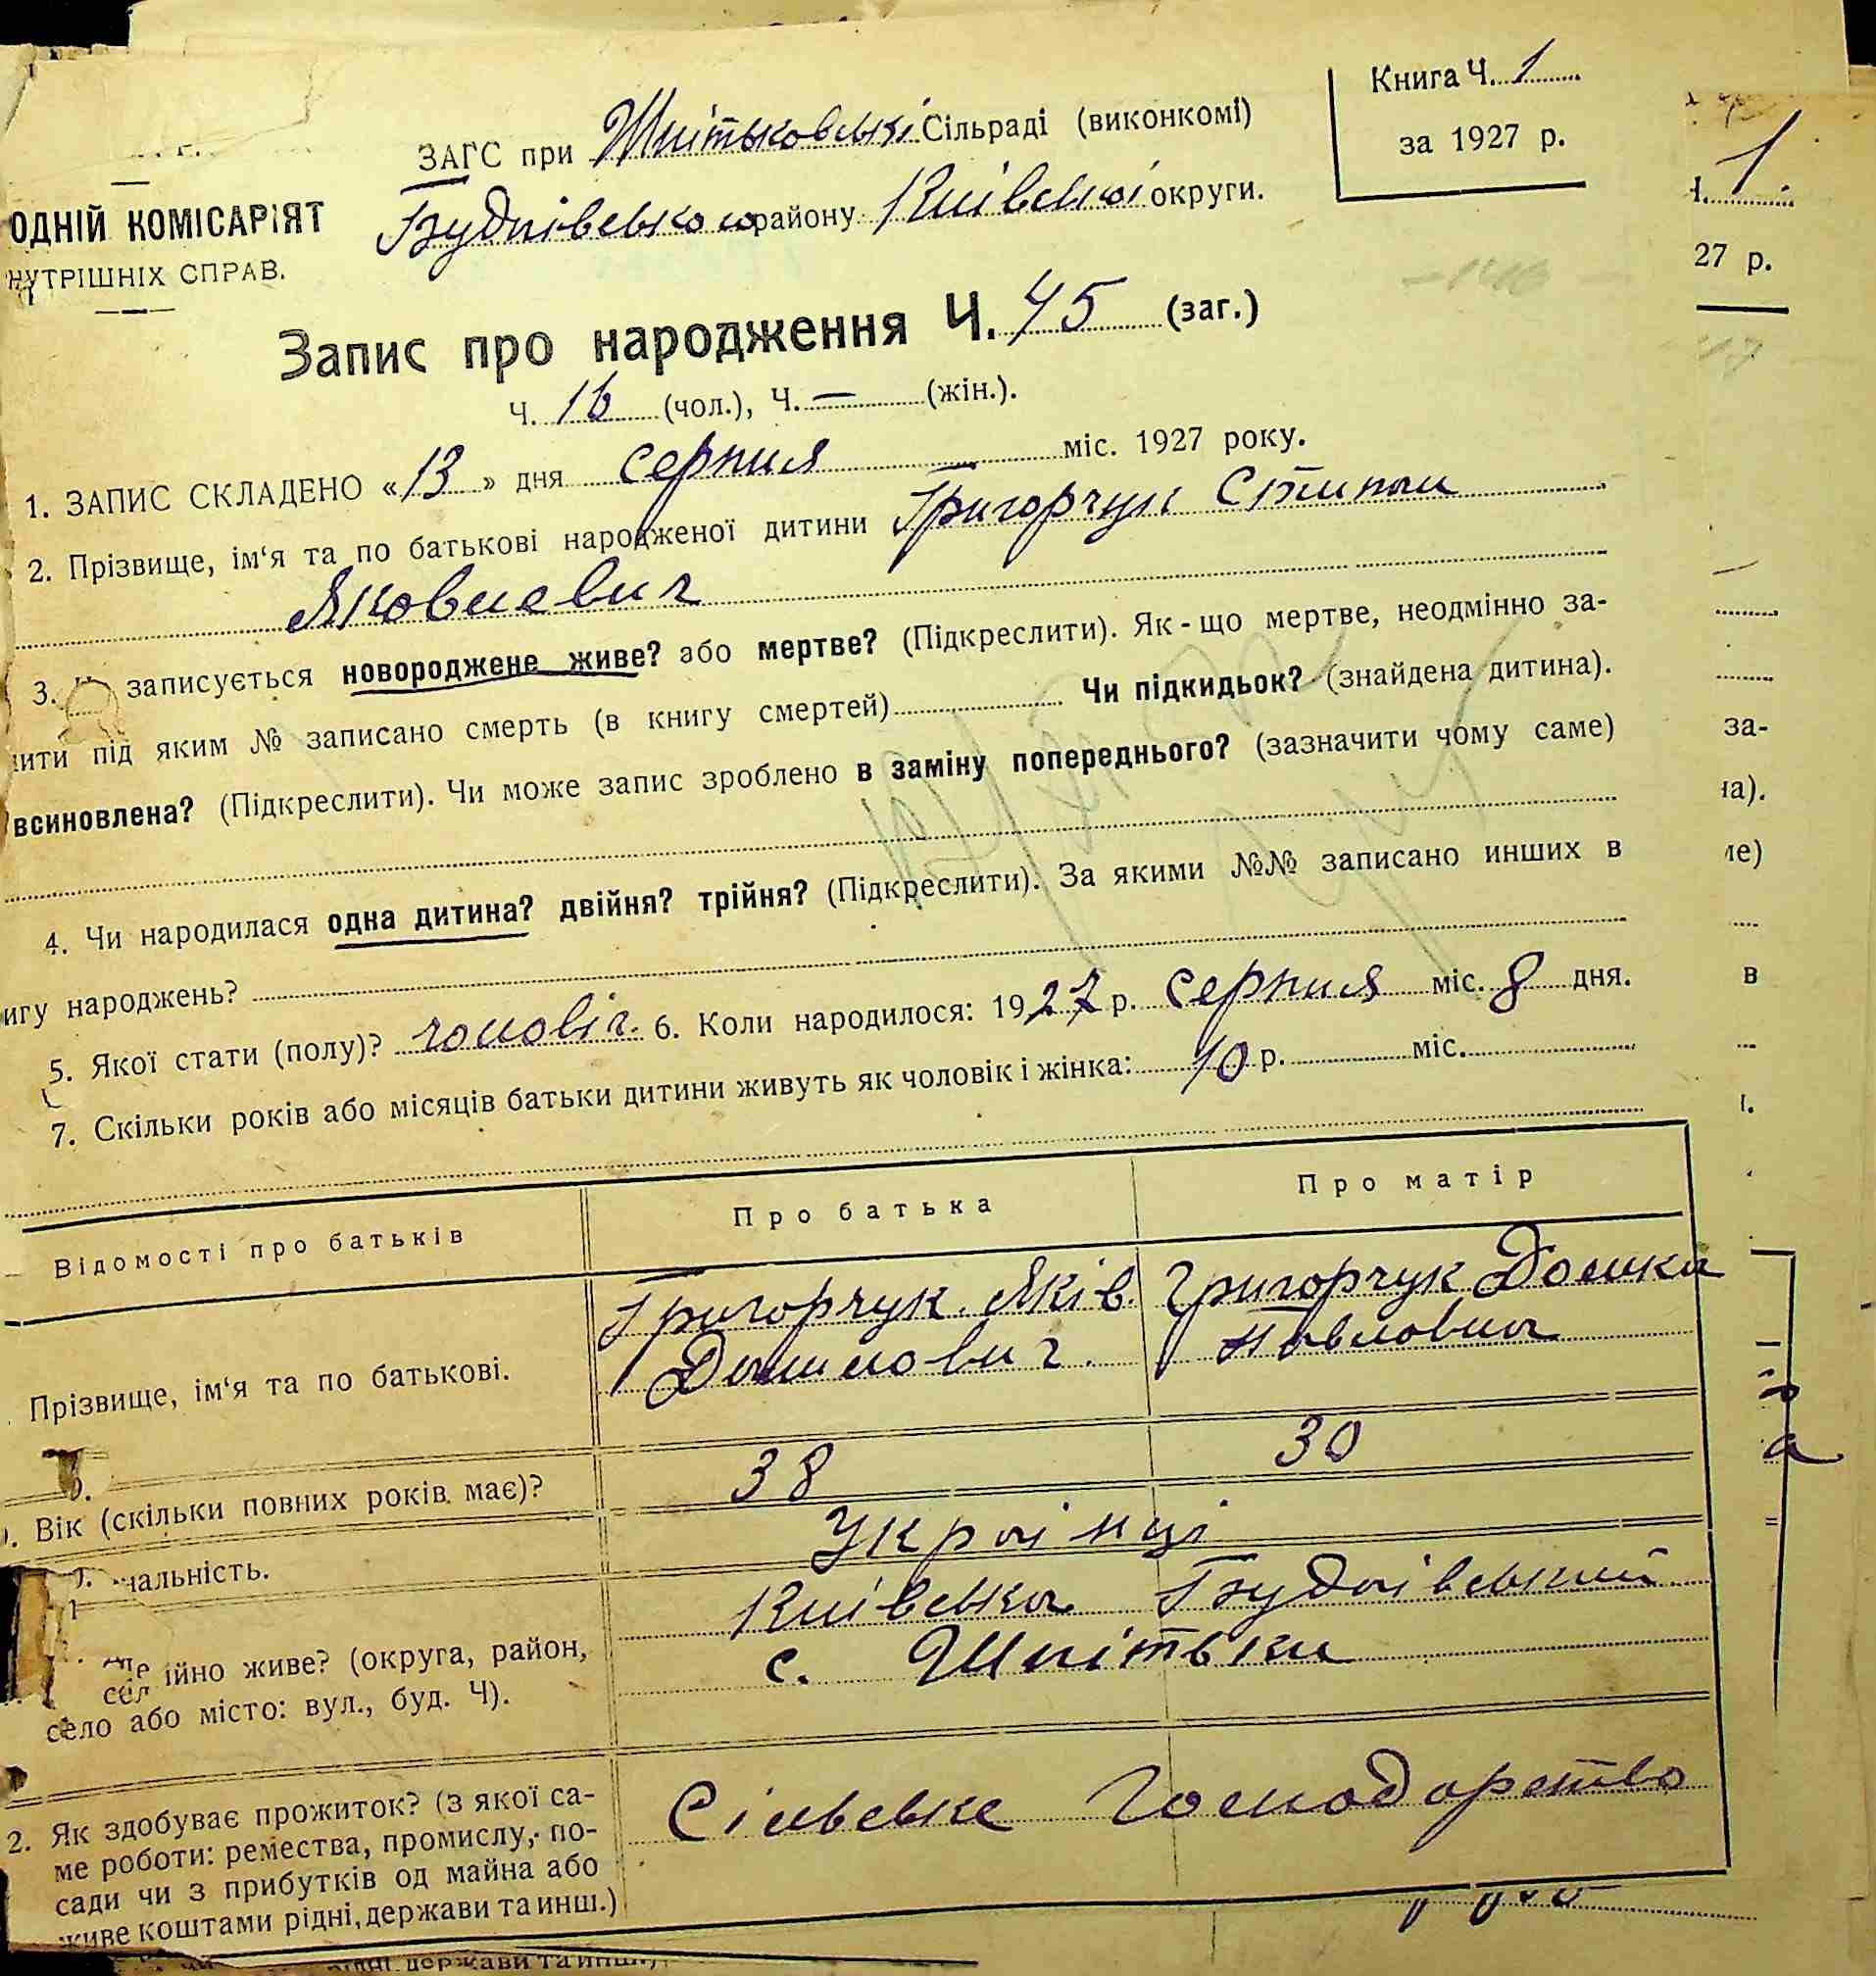 Книга Ч. 1
за 1927 р.
ЗАГС при Шпітьковські Сільраді (виконкомі)
Будаївського району Київської округи.
ОДНІЙ КОМІСАРІЯТ
НУТРІШНІХ СПРАВ.
Запис про народження Ч. 45 (заг.)
Ч. 16 (чол.), Ч. — (жін.).
1. ЗАПИС СКЛАДЕНО «13» дня серпня міс. 1927 року.
2. Прізвище, ім‘я та по батькові народженої дитини Григорчук Стипан
Яковлевич
3. записується новороджене живе? або мертве? (Підкреслити). Як-що мертве, неодмінно за-
ити під яким № записано смерть (в книгу смертей) Чи підкидьок? (знайдена дитина).
всиновлена? (Підкреслити). Чи може запис зроблено в заміну попереднього? (зазначити чому саме)
4. Чи народилася одна дитина? двійня? трійня? (Підкреслити). За якими №№ записано инших в
игу народжень?
5. Якої стати (полу)? чоловіч. 6. Коли народилося: 1927 р. серпня міс. 8 дня.
7. Скільки років або місяців батьки дитини живуть як чоловік і жінка: 10 р. міс.
Відомості про батьків Про батька Про матір
Прізвище, ім‘я та по батькові.
Григорчук Яків
Данилович
Григорчук Домка
Павловна
Вік (скільки повних років має)? 38 30
нальність. Українці
ійно живе? (округа, район,
село або місто: вул., буд. Ч).
Київська Будаївський
с. Шпітьки
2. Як здобуває прожиток? (з якої са-
ме роботи: ремества, промислу, по-
сади чи з прибутків од майна або
живе коштами рідні, держави та инш.)
Сільське Господарство
1
27 р.
за-
на).
ме)
в